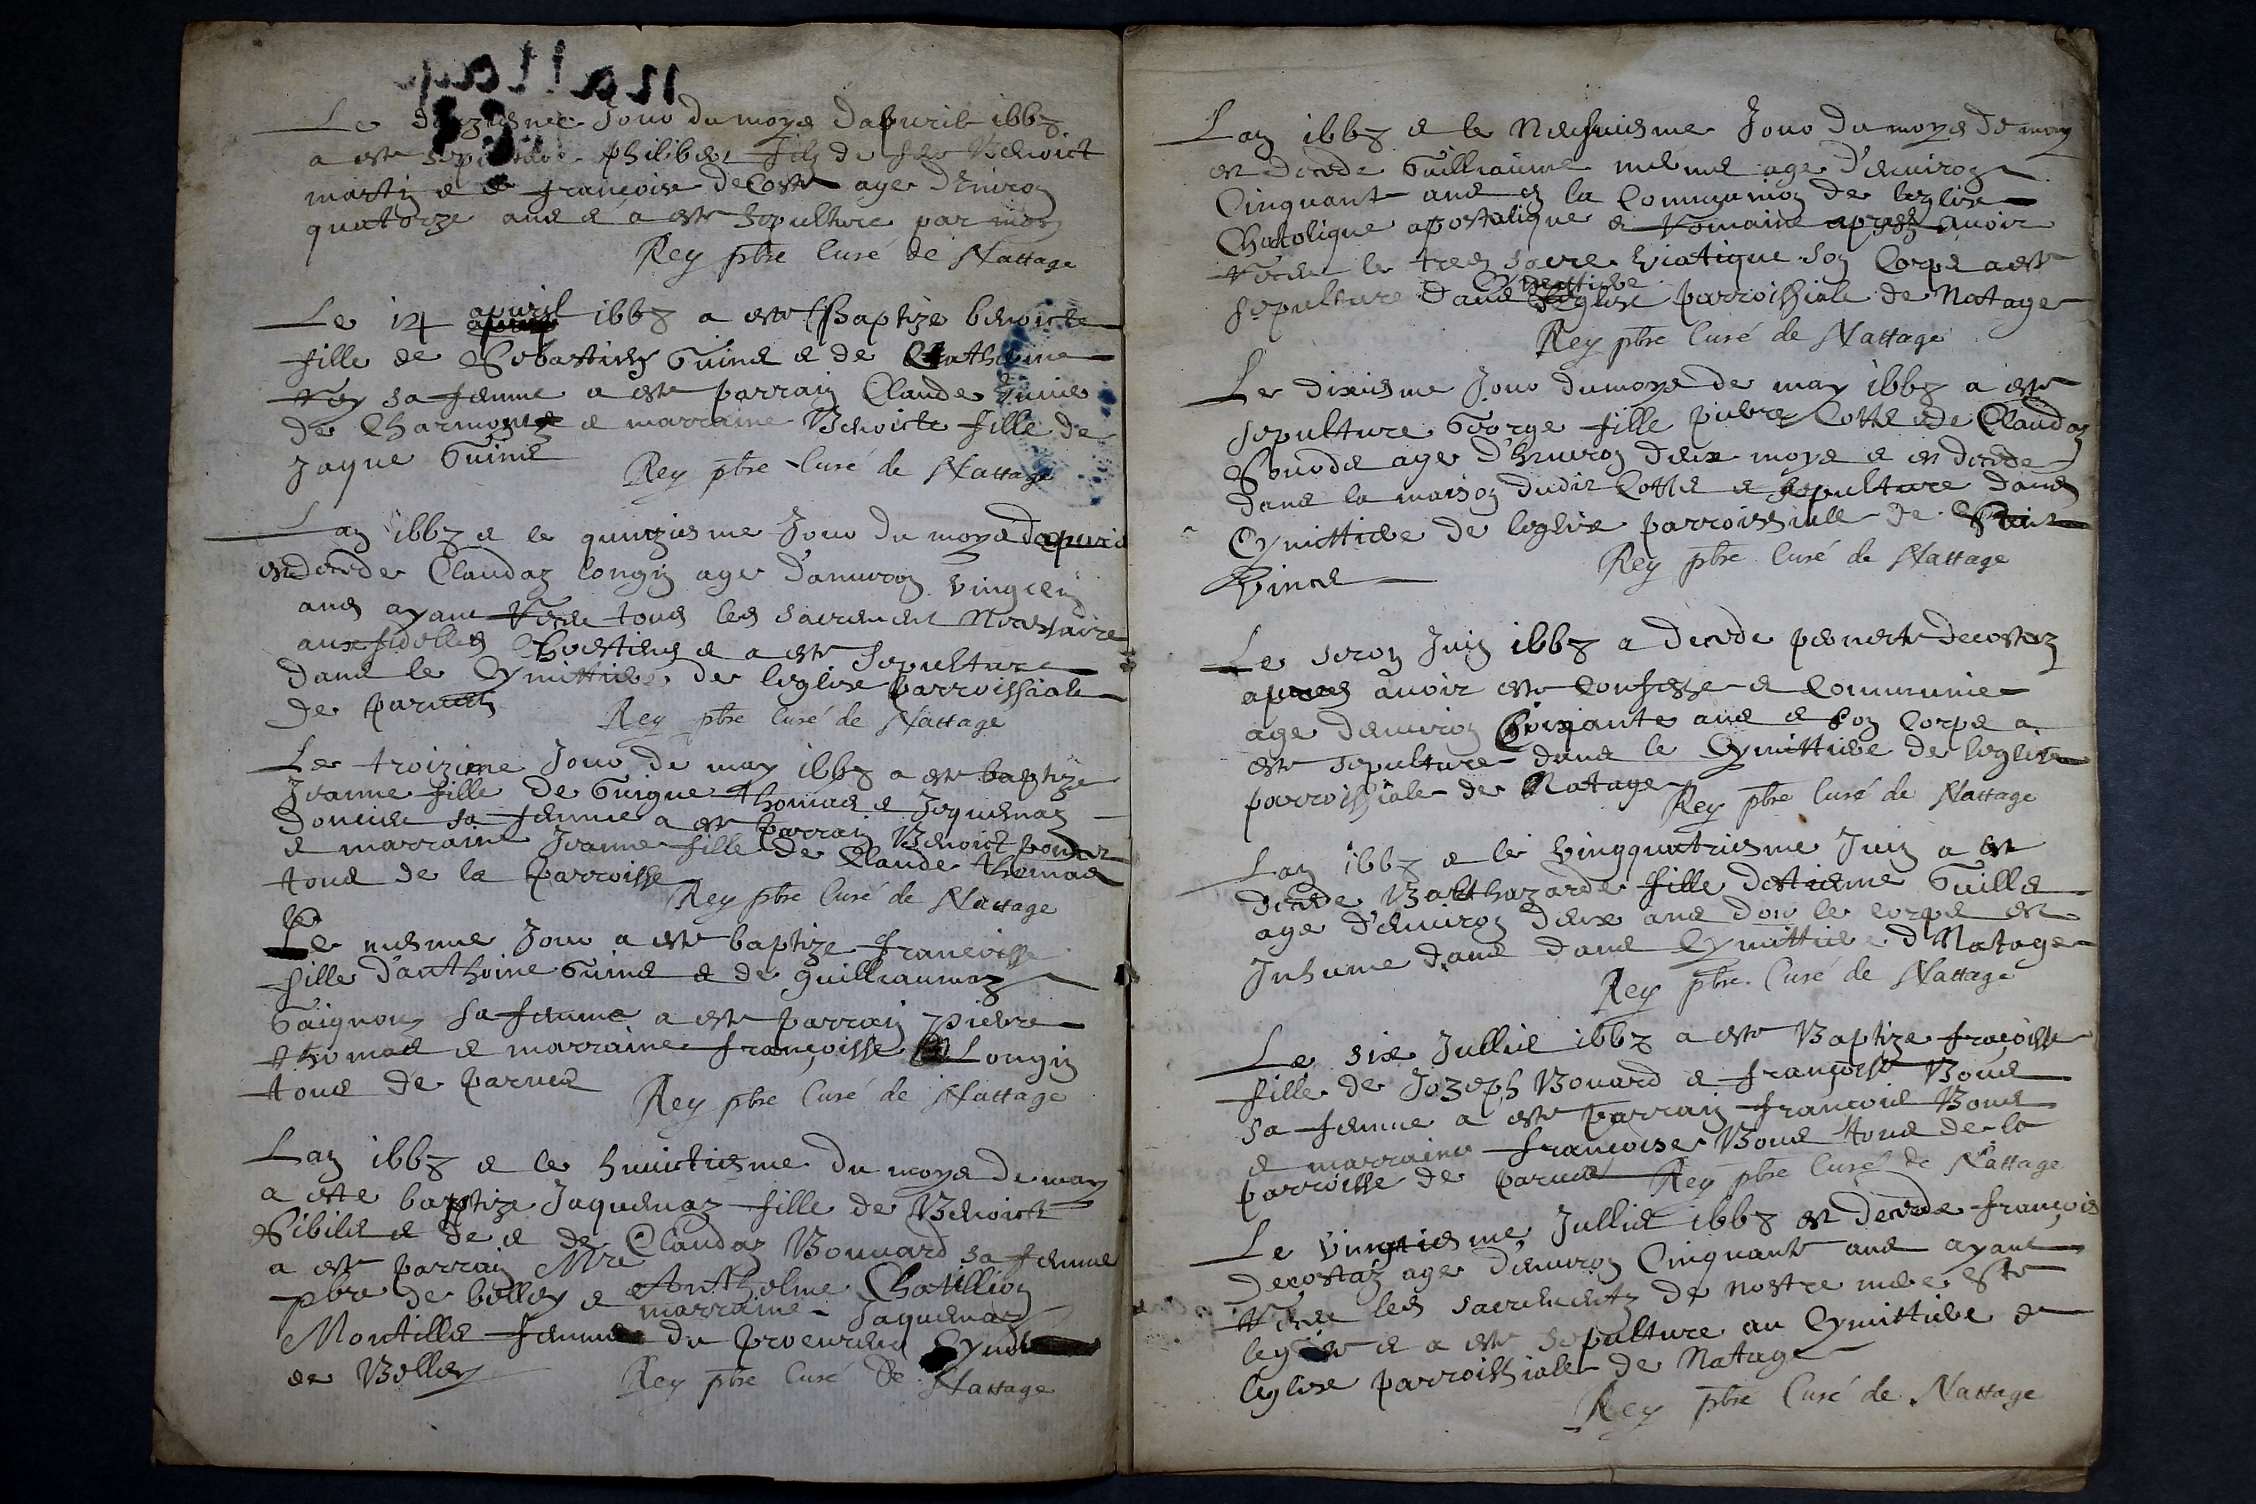 Le jour du moys dapvril 1668
a este philibert filz de feu Benoict
martin e de françoise decoste age d'Environ
quatorze ans e a este sepulture par moy
Rey pbre Curé de Nattage
Le 14 apvril 1668 a este Baptize benoicte
fille de Sebastien Guine e de Catherine
Rey sa femme a este parrain Claude Guine
de Charmont e marraine Benoicte fille de
Jaque Guine
Rey pbre Curé de Nattage
Lan 1668 e le quinziesme Jour du moys dapvril
est decede Claudaz longin age d'anviron vingt
ans ayant receu tous les sacrement Necessaire
aux fidelles Chrestiens e a este sepulture
dans le Cymittiere de leglise parroissiale
de parves
Rey pbre Curé de Nattage
Le troizieme Jour de may 1668 a este baptize
Jeanne fille de Guigue thomas e Jaquemaz
sa femme a este parrain Benoict
e marraine Jeanne fille de Claude thomas
tous de la parroisse
Rey pbre Curé de Nattage
Le mesme Jour a este baptize francoisse
fille d'anthoine Guine e de guilliaumaz
Gaignon sa femme a este parrain pierre
thomas e marraine françoisse Longin
tous de parves
Rey pbre Curé de Nattage
Lan 1668 e le huictiesme du moys de may
a este baptize Jaquemaz fille de Benoict
Sibile e de e de Claudaz Bouvard sa femme
a este parrain Mre Antholme Chatillion
pbre de belley e marraine Jaquemaz
Montillie femme du procureur Cynd
de Belley
Rey pbre Curé de Nattage
Lan 1668 e le Neufviesme Jour du moys de may
est decede Guilliaume age d'environ
Cinquante ans en la Communion de leglise
Chatolique apostolique e Romaine apres avoir
receu le tres sacre viatique son Corps a este
sepulture dans Cymittiere leglise parroissiale de Natage
Rey pbre Curé de Nattage
Le dixiesme Jour du moys de may 1668 a este
sepulture George fille pierre Cotte e de Claudaz
age d'Environ deux moys e est decede
dans la maison dudit Cotte e sepulture dans
Cymittiere de leglise parroissiale de Saint
Vincent
Rey pbre Curé de Nattage
Le Juin 1668 a decede pernete decostaz
apres avoir este Confesse e Communie
age denviron soixante ans e son Corps a
este sepulture dans le Cymittiere de leglise
parroissiale de Natage
Rey pbre Curé de Nattage
Lan 1668 e le vingquatriesme Juin a este
decede Balthazarde fille detienne Guille
age d'environ deux ans dont le corps est
Inhume dans dans Cymittiere d Natage
Rey pbre Curé de Nattage
Le six Jullie 1668 a este Baptize fraçoisse
fille de Jozeph Bouard e françoisse Bone
sa femme a este parrain francois Bone
e marraine françoise Bone tous de la
parroisse de parves
Rey pbre Curé de Nattage
Le vingtiesme Jullie 1668 est decede françois
decostaz age d'environ Cinquante ans ayant
receu les sacrementz de nostre mere
leglise e a este sepulture au Cymittiere de
leglise parroissiale de Natage
Rey pbre Curé de Nattage